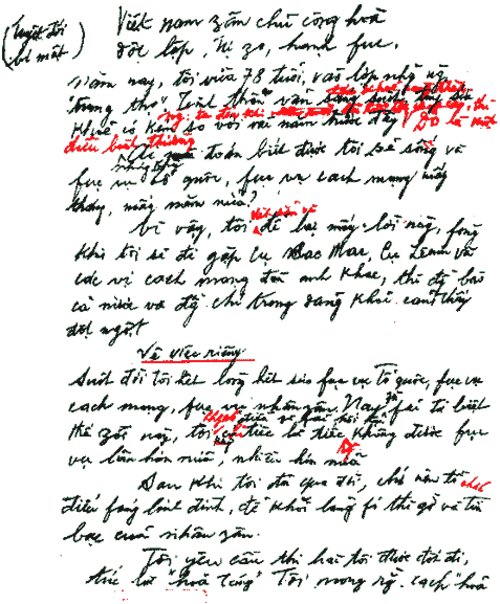 (Tuyệt đối
bí mật)
Việt nam zân chủ cộng hoà
độc lập, tự zo, hạnh fúc.
Năm nay, tôi vừa 78 tuổi, vào lớp những ng
"trung thọ". Tinh thần vẫn sáng suốt,
khoẻ có kém so với vài năm trước đây. Đó là một
điều bình thường
toán biết được tôi sẽ sống và
fục vụ tổ quốc, fục vụ cách mạng mấy
tháng, mấy năm nữa?
Vì vậy, tôi để lại mấy lời này, fòng
khi tôi sẽ đi gặp cụ Các Mác, cụ Lênin và
các vị cách mạng đàn anh khác, thì đ/bào
cả nước và đ/chí trong đảng khỏi cảm thấy
đột ngột
Về việc riêng
Suốt đời tôi hết lòng hết sức fục vụ tổ quốc, fục vụ
cách mạng, fục vụ nhân zân. Nay zù fải từ biệt
thế zới này, tôi không có điều gì fải hối hận
chỉ tiếc là tiếc không được fục
vụ lâu hơn nữa, nhiều hơn nữa
Sau khi tôi đã qua đời, chớ nên tổ chức
điếu fúng linh đình, để khỏi lãng fí thì giờ và tiền
bạc của nhân zân.
Tôi yêu cầu thi hài tôi được đốt đi,
tức là "hoả táng". Tôi mong rằng cách "hoả